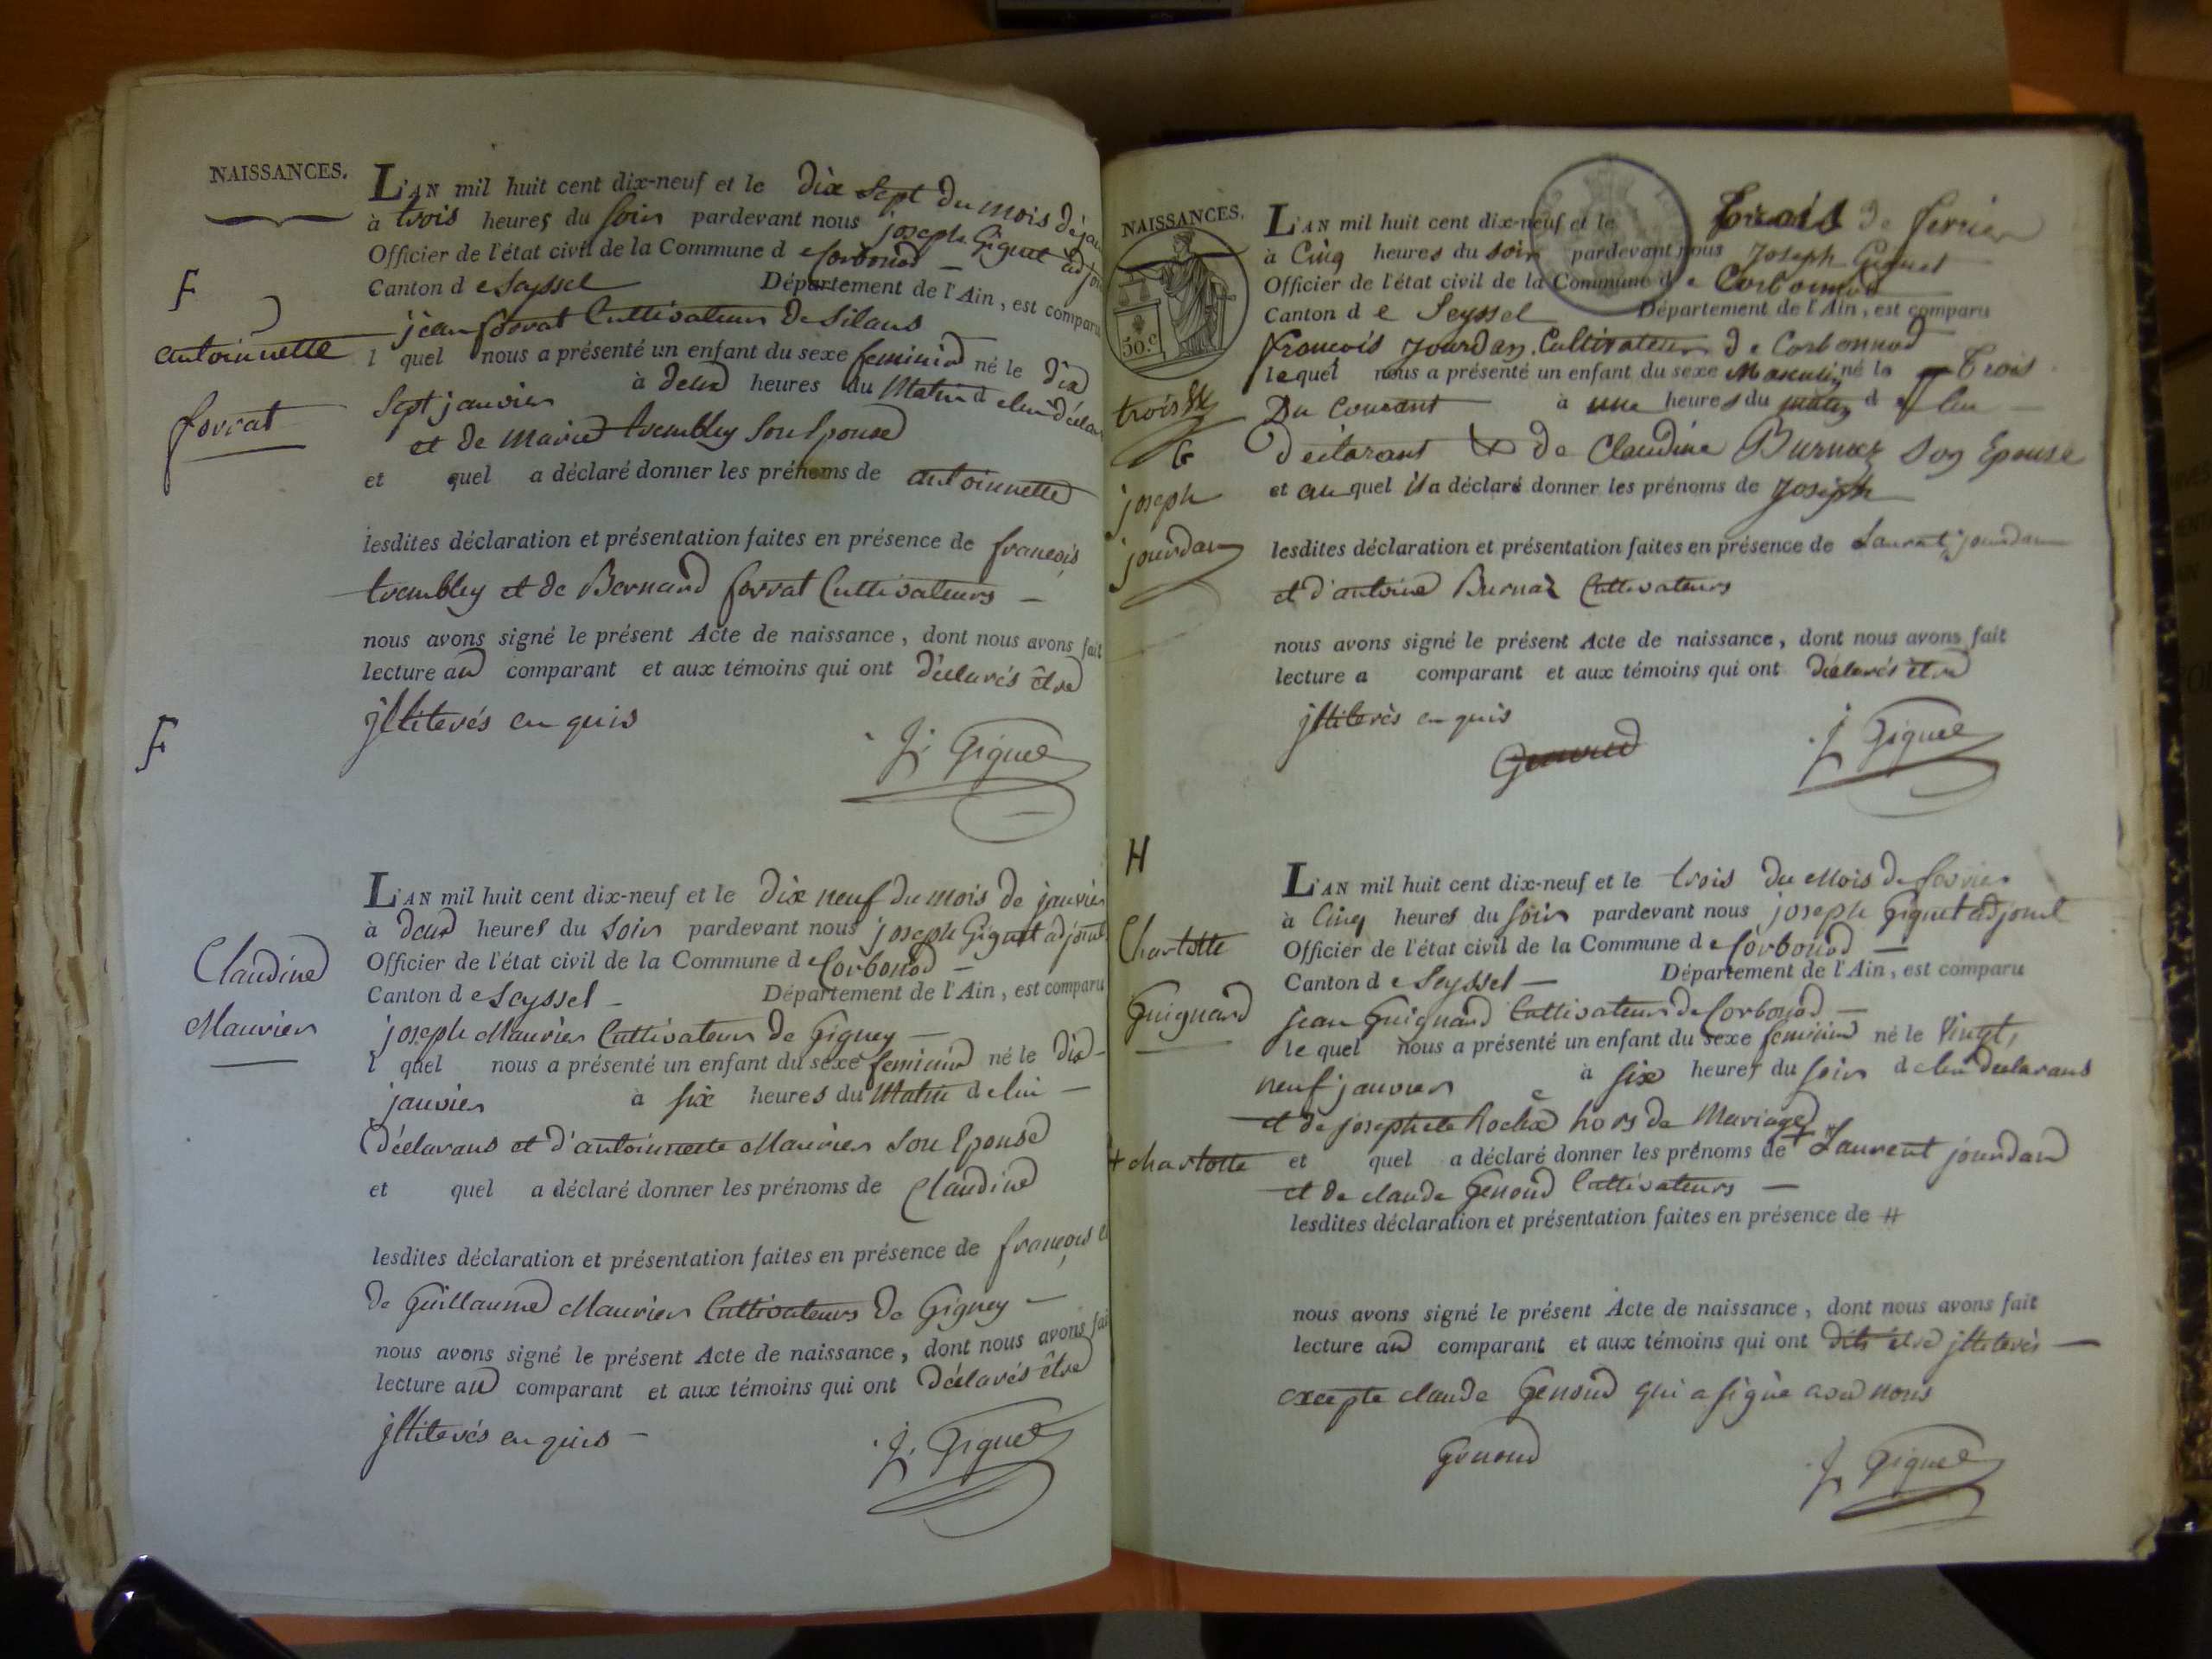 NAISSANCES.
L'AN mil huit cent dix-neuf et le dix sept du mois de jan
à trois heures du soir pardevant nous joseph Giguet adjoi
Officier de l'état civil de la Commune d e Corbonod —
Canton d e Seyssel Département de l'Ain, est comparu
F
antoinnette
forrat
jean forrat Cultivateur de Silans
l quel nous a présenté un enfant du sexe feminin né le dix
sept janvier à deux heures du Matin d e lui déclar
et de Marie trembley Son Epouse
et quel a déclaré donner les prénoms de antoinnette
lesdites déclaration et présentation faites en présence de françois
trembley et de Bernard forrat Cultivateurs —
nous avons signé le présent Acte de naissance, dont nous avons fait
lecture au comparant et aux témoins qui ont déclarés être
jlliterés enquis
J. Giguet
F
L'AN mil huit cent dix-neuf et le dix neuf du mois de janvier
à deux heures du soir pardevant nous joseph Giguet adjoint
Officier de l'état civil de la Commune d e Corbonod —
Canton d e Seyssel — Département de l'Ain, est comparu
Claudine
Maurier
joseph Maurier Cultivateur de Gigney —
l quel nous a présenté un enfant du sexe feminin né le dix-
janvier à six heures du Matin d e lui —
déclarans et d'antoinnette Maurier Son Epouse
et quel a déclaré donner les prénoms de Claudine
lesdites déclaration et présentation faites en présence de françois et
de Guillaume Maurier Cultivateurs de Gigney —
nous avons signé le présent Acte de naissance, dont nous avons fai
lecture au comparant et aux témoins qui ont déclarés être
jlliterés enquis —
J. Giguet
NAISSANCES.
50.c
L'AN mil huit cent dix-neuf et le trois de fevrier
à Cinq heures du soir pardevant nous Joseph Giguet
Officier de l'état civil de la Commune d e Corbonnod
Canton d e Seyssel Département de l'Ain, est comparu
françois Jourdan Cultivateur de Corbonnod
le quel nous a présenté un enfant du sexe Masculin né le trois
Du Courant à une heures du matin d e lui
déclarant & de Claudine Burnaz Son Epouse
et au quel il a déclaré donner les prénoms de Joseph
trois
G
joseph
jourdan
lesdites déclaration et présentation faites en présence de Laurent jourdan
et d'antoine Burnaz Cultivateurs
nous avons signé le présent Acte de naissance, dont nous avons fait
lecture a comparant et aux témoins qui ont déclarés être
jlliterés enquis
Genoud
J Giguet
H
Charlotte
Guignard
L'AN mil huit cent dix-neuf et le trois du Mois de fevrier
à Cinq heures du soir pardevant nous joseph Giguet adjoint
Officier de l'état civil de la Commune d e Corbonod —
Canton d e Seyssel — Département de l'Ain, est comparu
jean Guignard Cultivateur de Corbonod —
le quel nous a présenté un enfant du sexe feminin né le Vingt,
neuf janvier à six heures du soir d e lui declarans
et de josephete Rochex hors de Mariage
+ charlotte
et quel a déclaré donner les prénoms de + # Laurent jourdan
et de claude Genoud Cultivateurs —
lesdites déclaration et présentation faites en présence de #
nous avons signé le présent Acte de naissance, dont nous avons fait
lecture au comparant et aux témoins qui ont dits être jlliterés —
excepte claude Genoud qui a signé avec nous
Genoud
J. Giguet